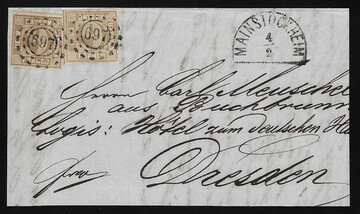 397 397
MAINSTOCKHEIM
4
2
Herrn Carl Meuschel
aus Buchbrunn
Logis: Hôtel zum deutschen Haus
frco
Dresden